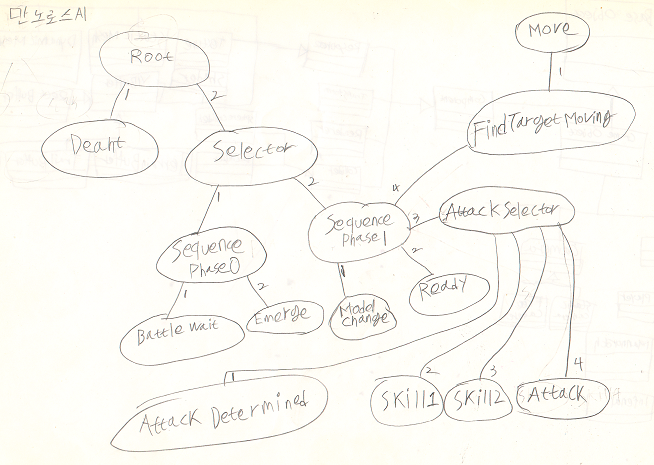 만노로스AI
Move
Root
1
1
2
FindTargetMoving
Deaht
Selector
4
1
2
3
AttackSelector
Sequence
Phase1
2
Sequence
Phase0
1
2
1
Ready
Model
Change
Battle Wait
Emerge
1
2
3
4
Attack Determined
SKill1
SKill2
Attack